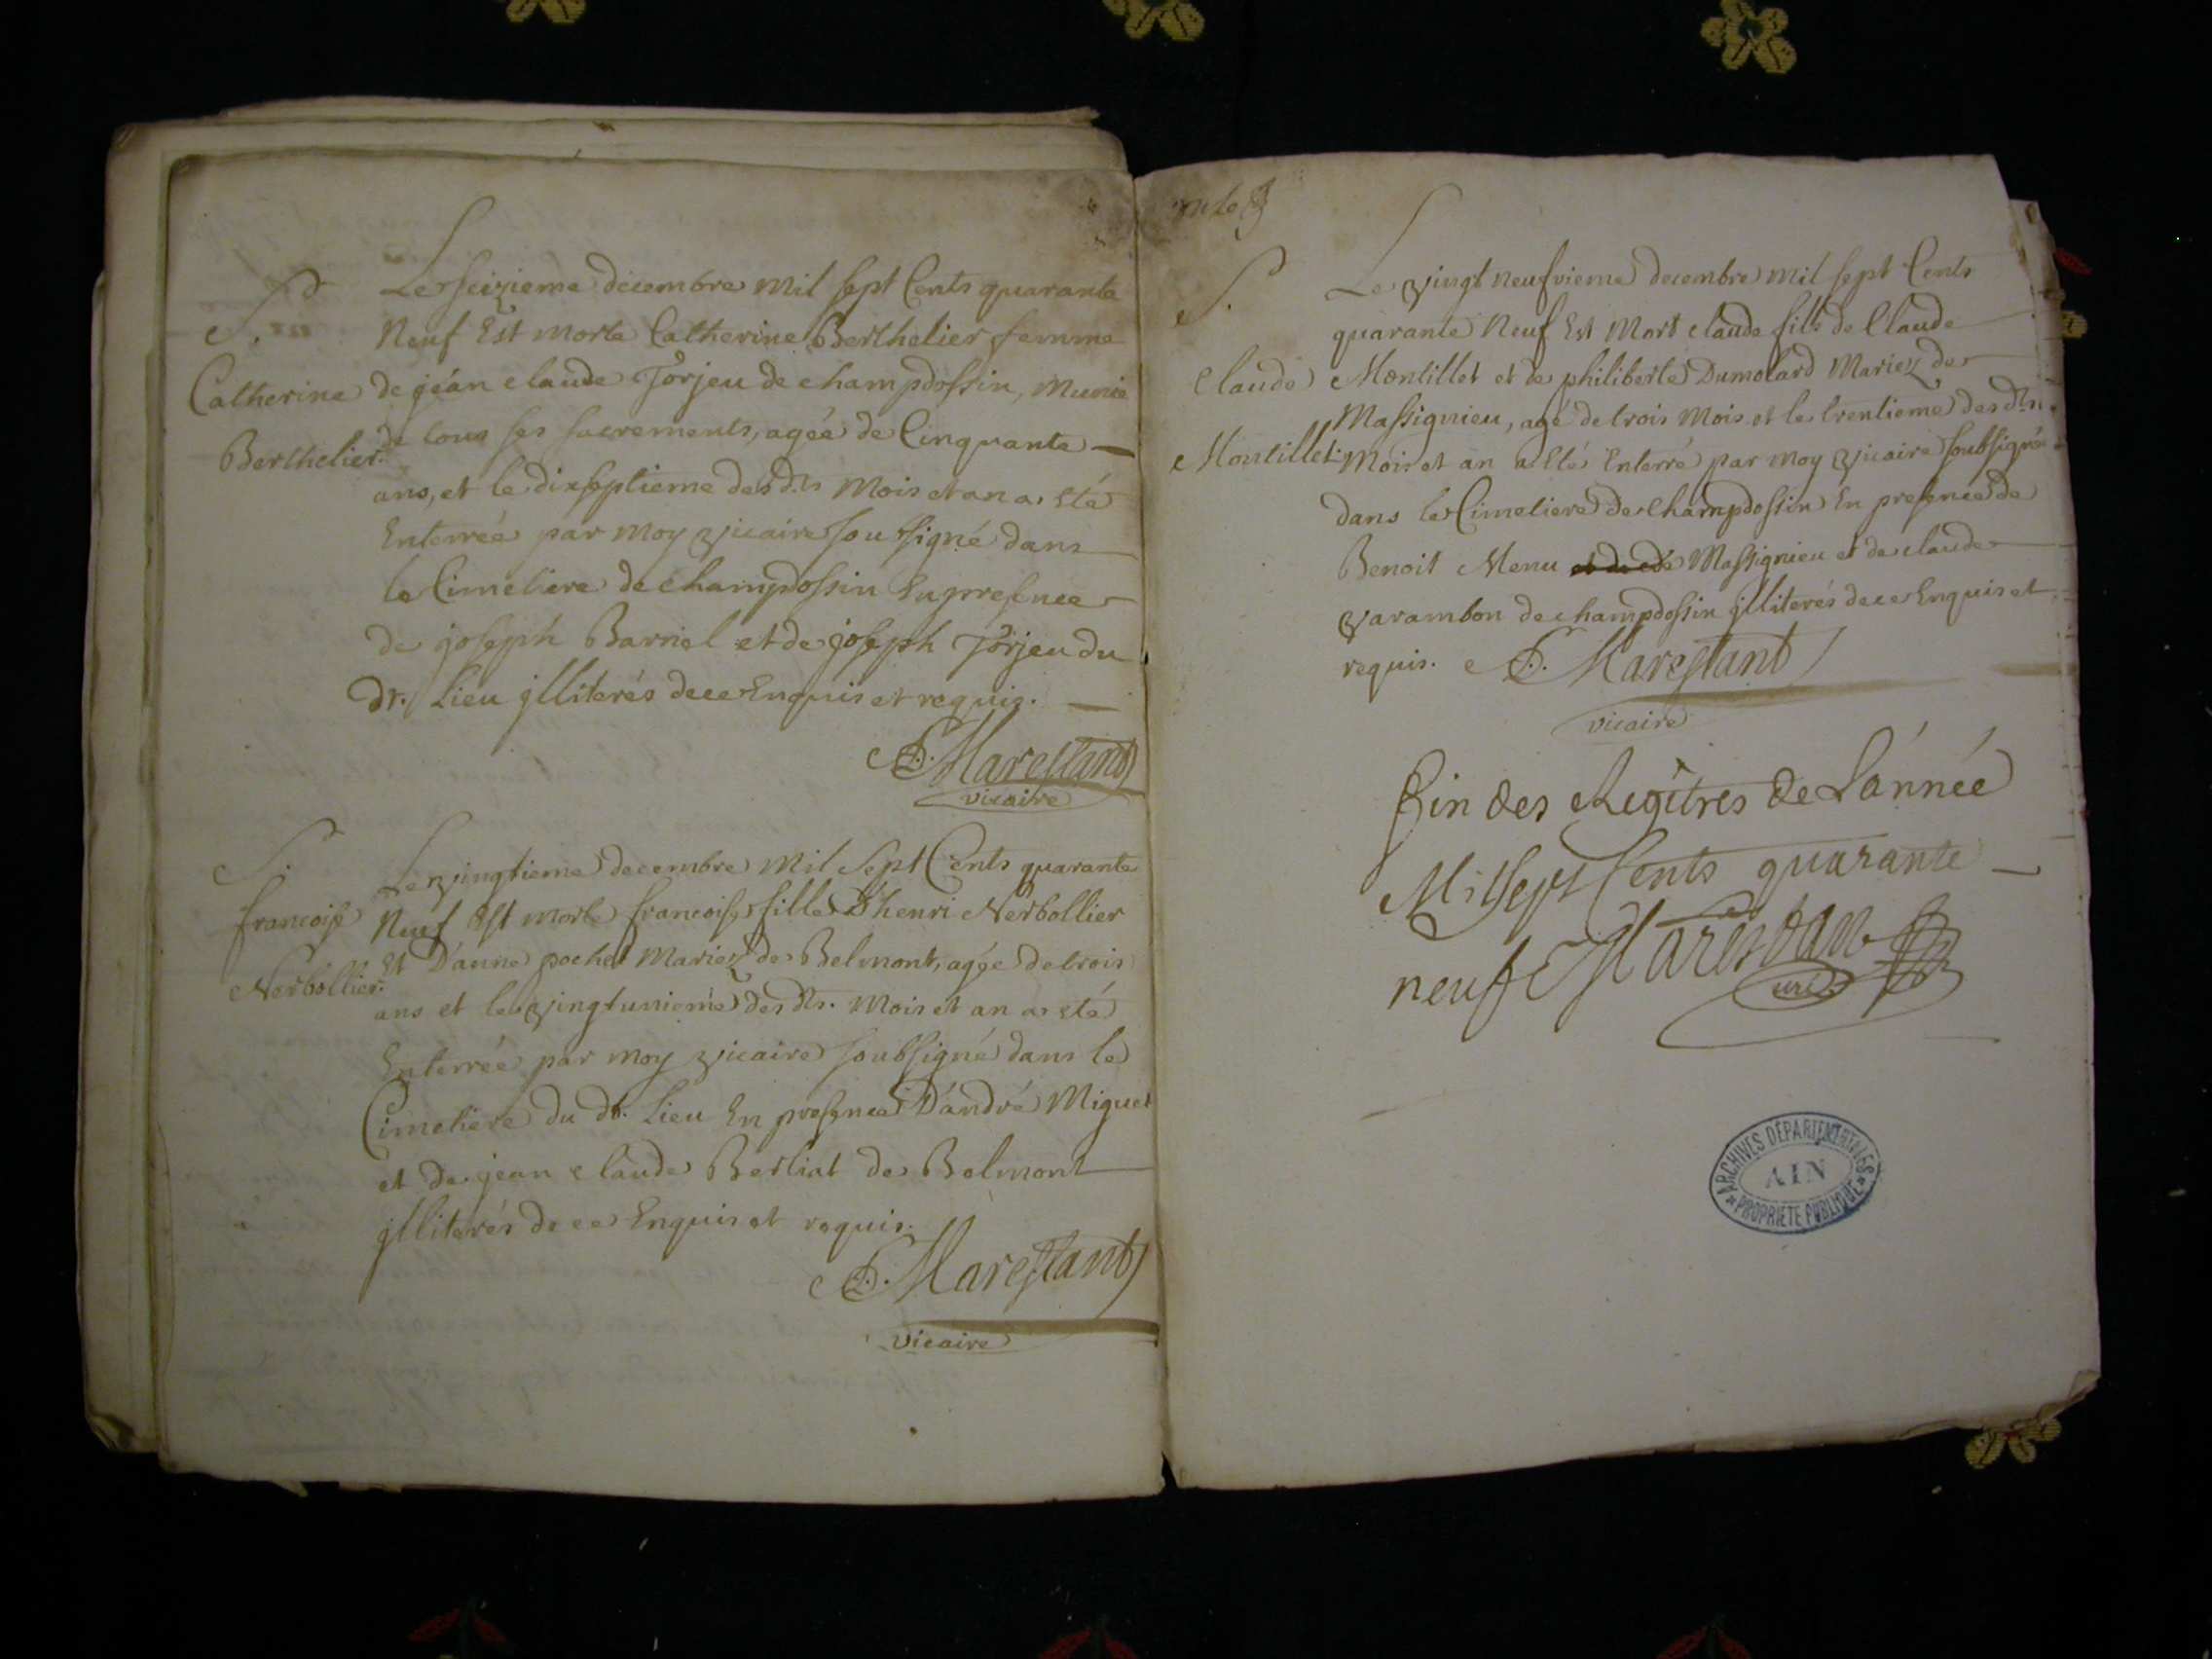 S.d
Catherine
Berthelier.
Le seizieme decembre mil sept Cents quarante
Neuf Est morte Catherine Berthelier femme
de jéan claude Jorjeu de champdossin, Munie
de tous ses sacrements, agéé de Cinquante
ans, et le dixseptieme des dts Mois et an a Eté
Enterreé par moy vicaire soussigné dans
le Cimetiere de champdossin En presence
de joseph Barriel et de joseph Jorjeu du
dt. Lieu jlliterés de ce Enquis et requis.
Marestant
vicaire
S.
francoise
Nerbollier.
Le vingtieme decembre Mil Sept Cents quarante
Neuf Est morte francoise fille D'henri Nerbollier
Et D'anne pochet Mariez de Belmont, agéé de trois
ans et le vingtunieme des dts. Mois et an a eté
Enterreé par moy vicaire soubsigné dans le
Cimetiere du dt. Lieu En presence D'andré Miguet
et de jean claude Berliat de Belmont
jlliterés de ce Enquis et requis.
Marestant
vicaire
S.
Claude
Montillet.
Le vingt neufvieme decembre mil sept Cents
quarante Neuf Est Mort claude fils de Claude
Montillet et de philiberte Dumolard Mariez de
Massignieu, agé de trois Mois et le trentieme des dts.
Mois et an a Eté Enterré par moy vicaire soubsigné
dans le Cimetiere de Champdossin En presence de
Benoit Menu Massignieu et de claude
varambon de champdossin jlliterés de ce Enquis et
requis. Marestant
vicaire
fin des Regitres de L'année
Mil Sept Cents quarante
neuf Marestan
curé
ARCHIVES DÉPARTEMENTALES
AIN
PROPRIÉTÉ PUBLIQUE